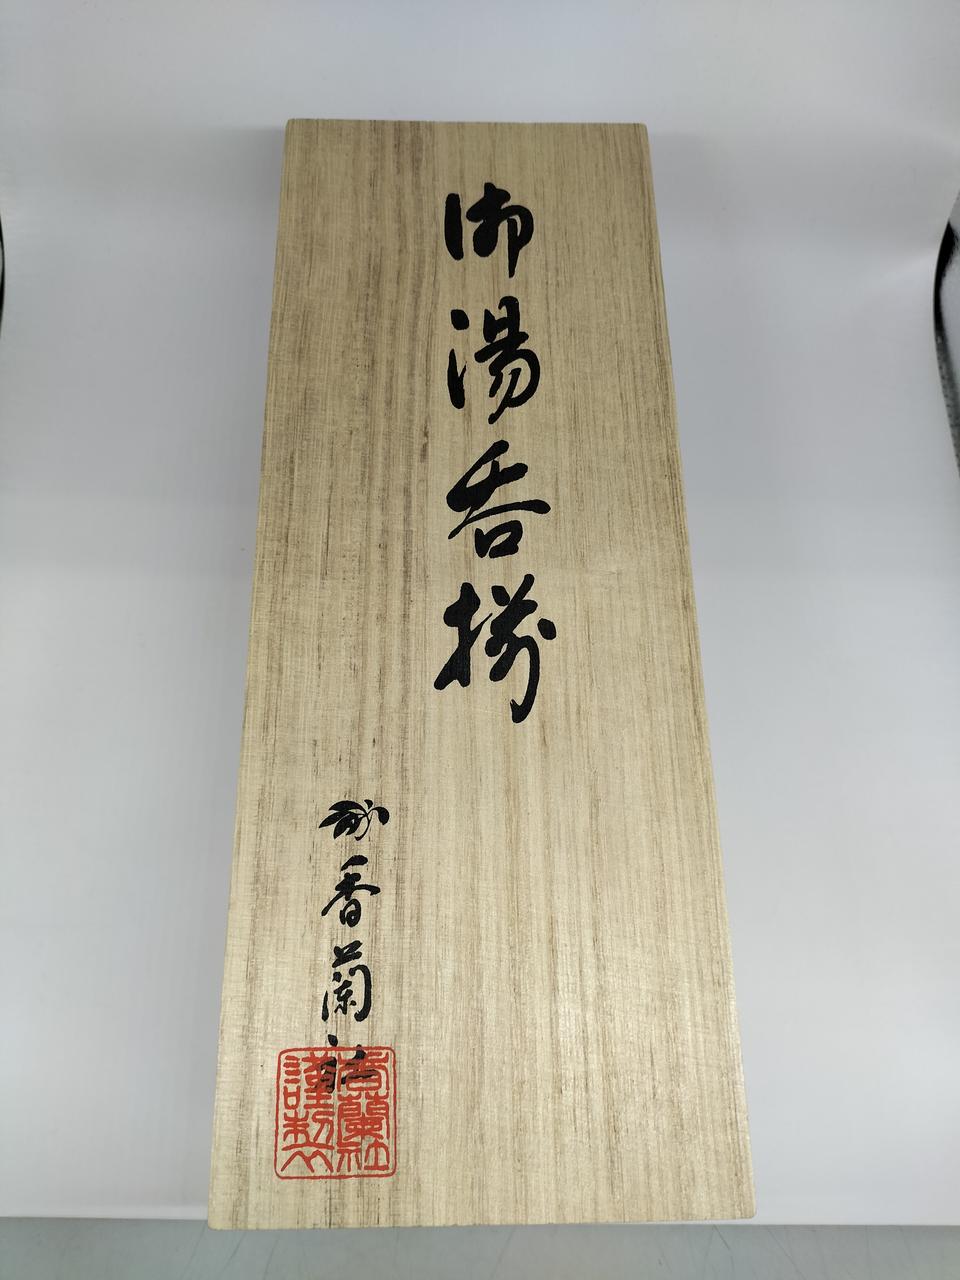 御湯呑揃
香蘭社
香蘭社
謹製